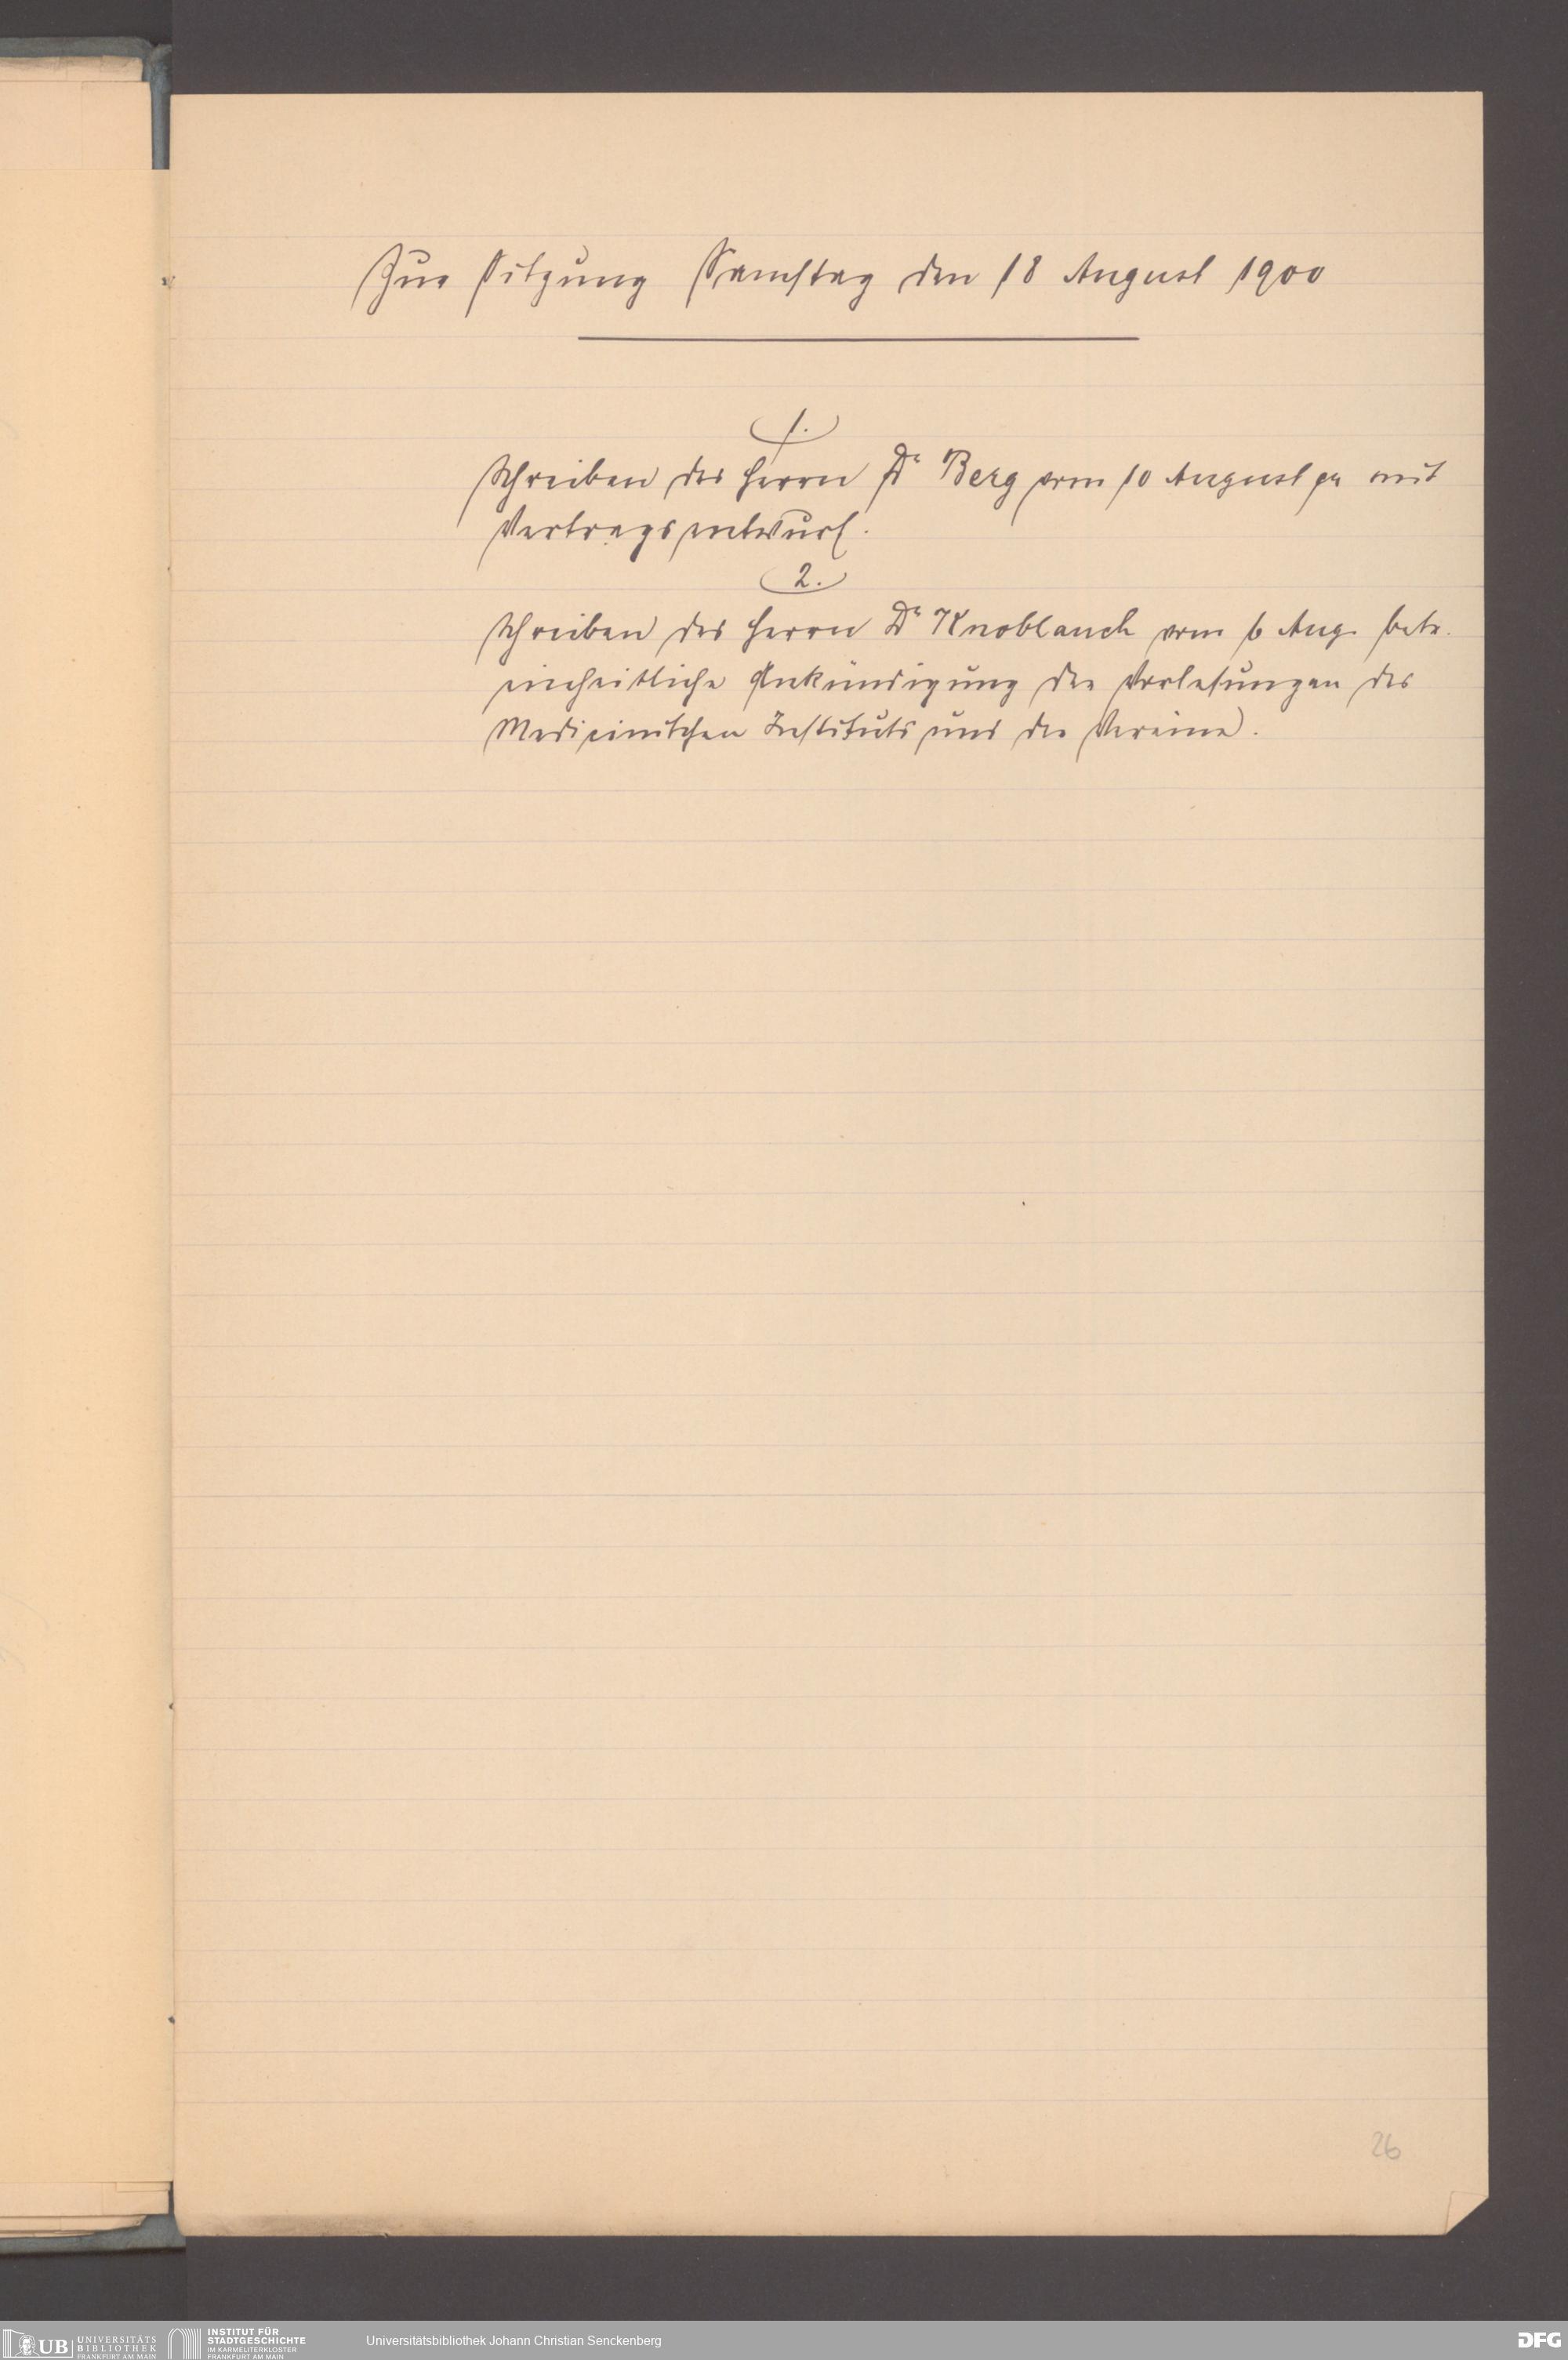 Zur Sitzung Samstag den 18 August 1900
1.
Schreiben des Herrn Dr Berg vom 10 August pr mit
Vertragsentwurf.
2.
Schreiben des Herrn Dr Knoblauch vom 6 Aug. betr.
einheitliche Ankündigung der Vorlesungen des
Medicinischen Instituts und der Vereine.
26
UB UNIVERSITÄTS
BIBLIOTHEK
FRANKFURT AM MAIN
INSTITUT FÜR
STADTGESCHICHTE
IM KARMELITERKLOSTER
FRANKFURT AM MAIN
Universitätsbibliothek Johann Christian Senckenberg
DFG